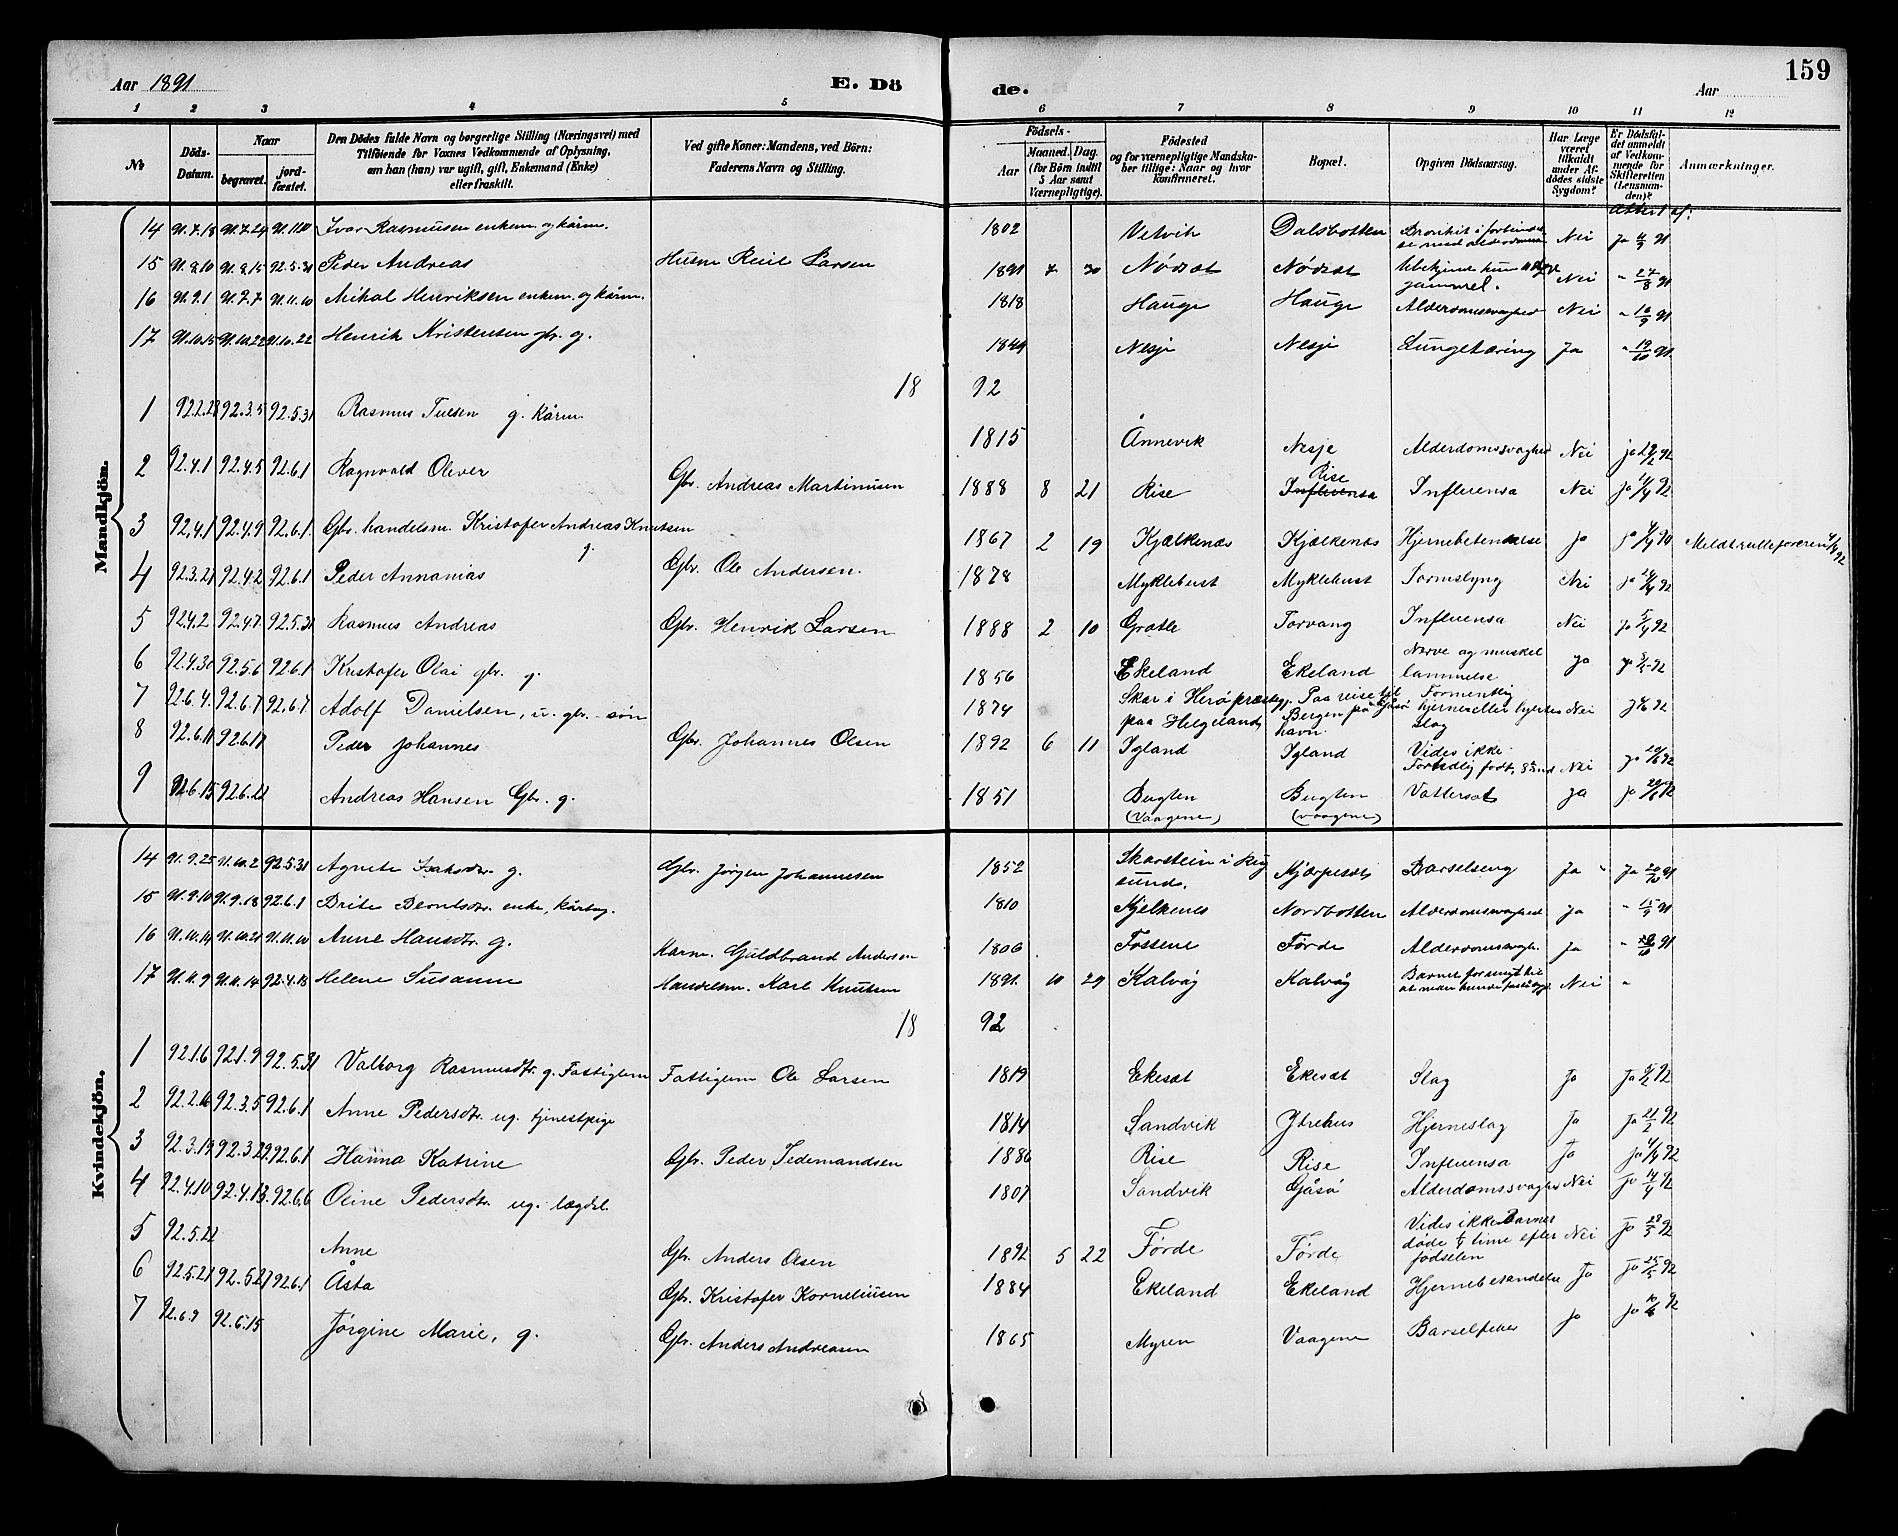 Aar 1891 E. Döde. Aar 159
1 2 3 4 5 6 7 8 9 10 11 12
No Döds-Datum. Naar begravet. jordfæstet. Den Dödes fulde Navn og borgerlige Stilling (Næringsvei) med Tilföiende for Voxnes Vedkommende af Oplysning, om han (hun) var ugift, gift, Enkemand (Enke) eller fraskilt. Ved gifte Koner: Mandens, ved Börn: Faderens Navn og Stilling. Födsels- Aar Maaned. Dag. (for Börn indtil 5 Aar samt Værnepligtige). Födested og for værnepligtige Mandskaber tillige: Naar og hvor konfirmeret. Bopæl. Opgiven Dödsaarsag. Har Læge været tilkaldt under Afdödes sidste Sygdom? Er Dödsfaldet anmeldt af Vedkommende for Skifteretten (Lensmanden)? Anmærkninger.
Mandkjön.
14 91.7.18 91.7.24 Ivar Rasmusen enkem. og kårm. 1802 Vetvik Dalsbotten Nei Ja 91
15 91.8.10 91.8.15 92.5.31 Peder Andreas Larsen 1891 7 30 Nødset Nødset gammel. Nei " 24/8 91
16 91.9.1 91.9.7 91.11.10 Mikal Henriksen enkem. og kårm. 1818 Hauge Hauge Alderdomssvaghed Nei " 91
17 91.10.15 91.10.22 91.10.22 Henrik Kristensen gbr. g. 1849 Nesje Nesje Lungetæring Ja " 19/10 91
18 92
1 92.2.28 92.3.5 92.5.31 Rasmus g. kårm. 1815 Ånnevik Nesje Alderdomssvaghed Nei ja 92
2 92.4.1 92.4.5 92.6.1 Ragnvald Oliver Gbr. Andreas Martinusen 1888 8 21 Rise Rise Influensa Influensa Nei ja 92
3 92.4.1 92.4.9 92.6.1. Gbr. handelsm. Kristofer Andreas Knutsen g. 1867 2 19 Kjælkenæs Kjælkenæs Hjernebetendelse ja ja
4 92.3.21 92.4.2 92.6.1 Peder Annanias Gbr. Ole Andersen. 1878 Myklebust Myklebust Nei ja 92
5 92.4.2 92.4.7 92.5.31 Rasmus Andreas Gbr. Henrik Larsen 1888 2 10 Grotle Torvang Influensa Nei ja 5/4 92
6 92.5.6 92.6.1 Kristofer Olai gbr. g. 1856 Ekeland Ekeland Nerve og muskel lammelse ja ja 92
7 92.6.4. 92.6.7 92.6.7 Adolf Danielsen, u. gbr. søn 1874 Skar i Herø præstegj. paa Helgeland, Paa reise til Bergen på Gåsø havn. Formentlig hjerne eller hjerteslag Nei ja 92
8 92.6.11 92.6.17 Peder Johannes Gbr. Johannes Olsen 1892 6 11 Igland Igland Vides ikke. Nei ja 92
9 92.6.15 92.6.22 Andreas Hansen Gbr. g. 1851 Bugten (Vaagene) Bugten (vaagene) Vattersot ja ja 92
Kvindekjön.
14 91.9.25 91.10.2 92.5.31 Agnete g. Gbr. Jørgen Johannesen 1852 Skarstein i sund. Barselseng Ja Ja 20/10 91
15 91.9.10 91.9.18 92.6.1 Brite Berntsdtr. enke, 1810 Kjelkenes Nordbotten Alderdomssvaghed Ja " 15/9 91
16 91.10.14 91.10.21 91.11.10 Anne Hansdtr. g. Kårm. Guldbrand Andersen 1806 Fossene Førde Alderdomssvagh. Ja " 91
17 91.11.9 91.11.14 92.4.18 Helene Susanne Handelsm. Karl Knutsen 1891. 10 29 Kalvåg Kalvåg Nei "
18 92
1 92.1.6 92.1.9 92.5.31 Valborg Rasmusdtr. g. Fattiglem Fattiglem Ole Larsen 1819 Ekesæt Ekesæt Slag Ja Ja 92
2 92.2.16 92.3.5 92.6.1 Anne Pedersdtr. ug. tjenestpige 1814 Sandvik Ytrehus Hjerneslag Ja Ja 21/2 92
3 92.3.19 92.3.29 92.6.1 Hanna Katrine Gbr. Peder Tedemandsen 1886 Rise Rise Influensa Ja ja 92
4 92.4.10 92.4.13. 92.6.6 Oline Pedersdtr. ug. lægdsl. 1807 Sandvik Gåsø Alderdomssvaghed Nei Ja 14/4 92
5 92.5.22 Anne Gbr. Anders Olsen 1892 5 22 Førde Førde Vides ikke. Barnet døde 1/4 time efter fødselen Nei Ja 28/5 92
6 92.5.21 92.5.27 92.6.1 Åsta Gbr. Kristofer Korneliusen 1884 Ekeland Ekeland Hjernebetændelse Ja Ja 25/5 92
7 92.6.9 92.6.15 Jørgine Marie, g. Gbr. Anders Andreasen 1865 Myren Vaagene Barselfeber Ja Ja 92